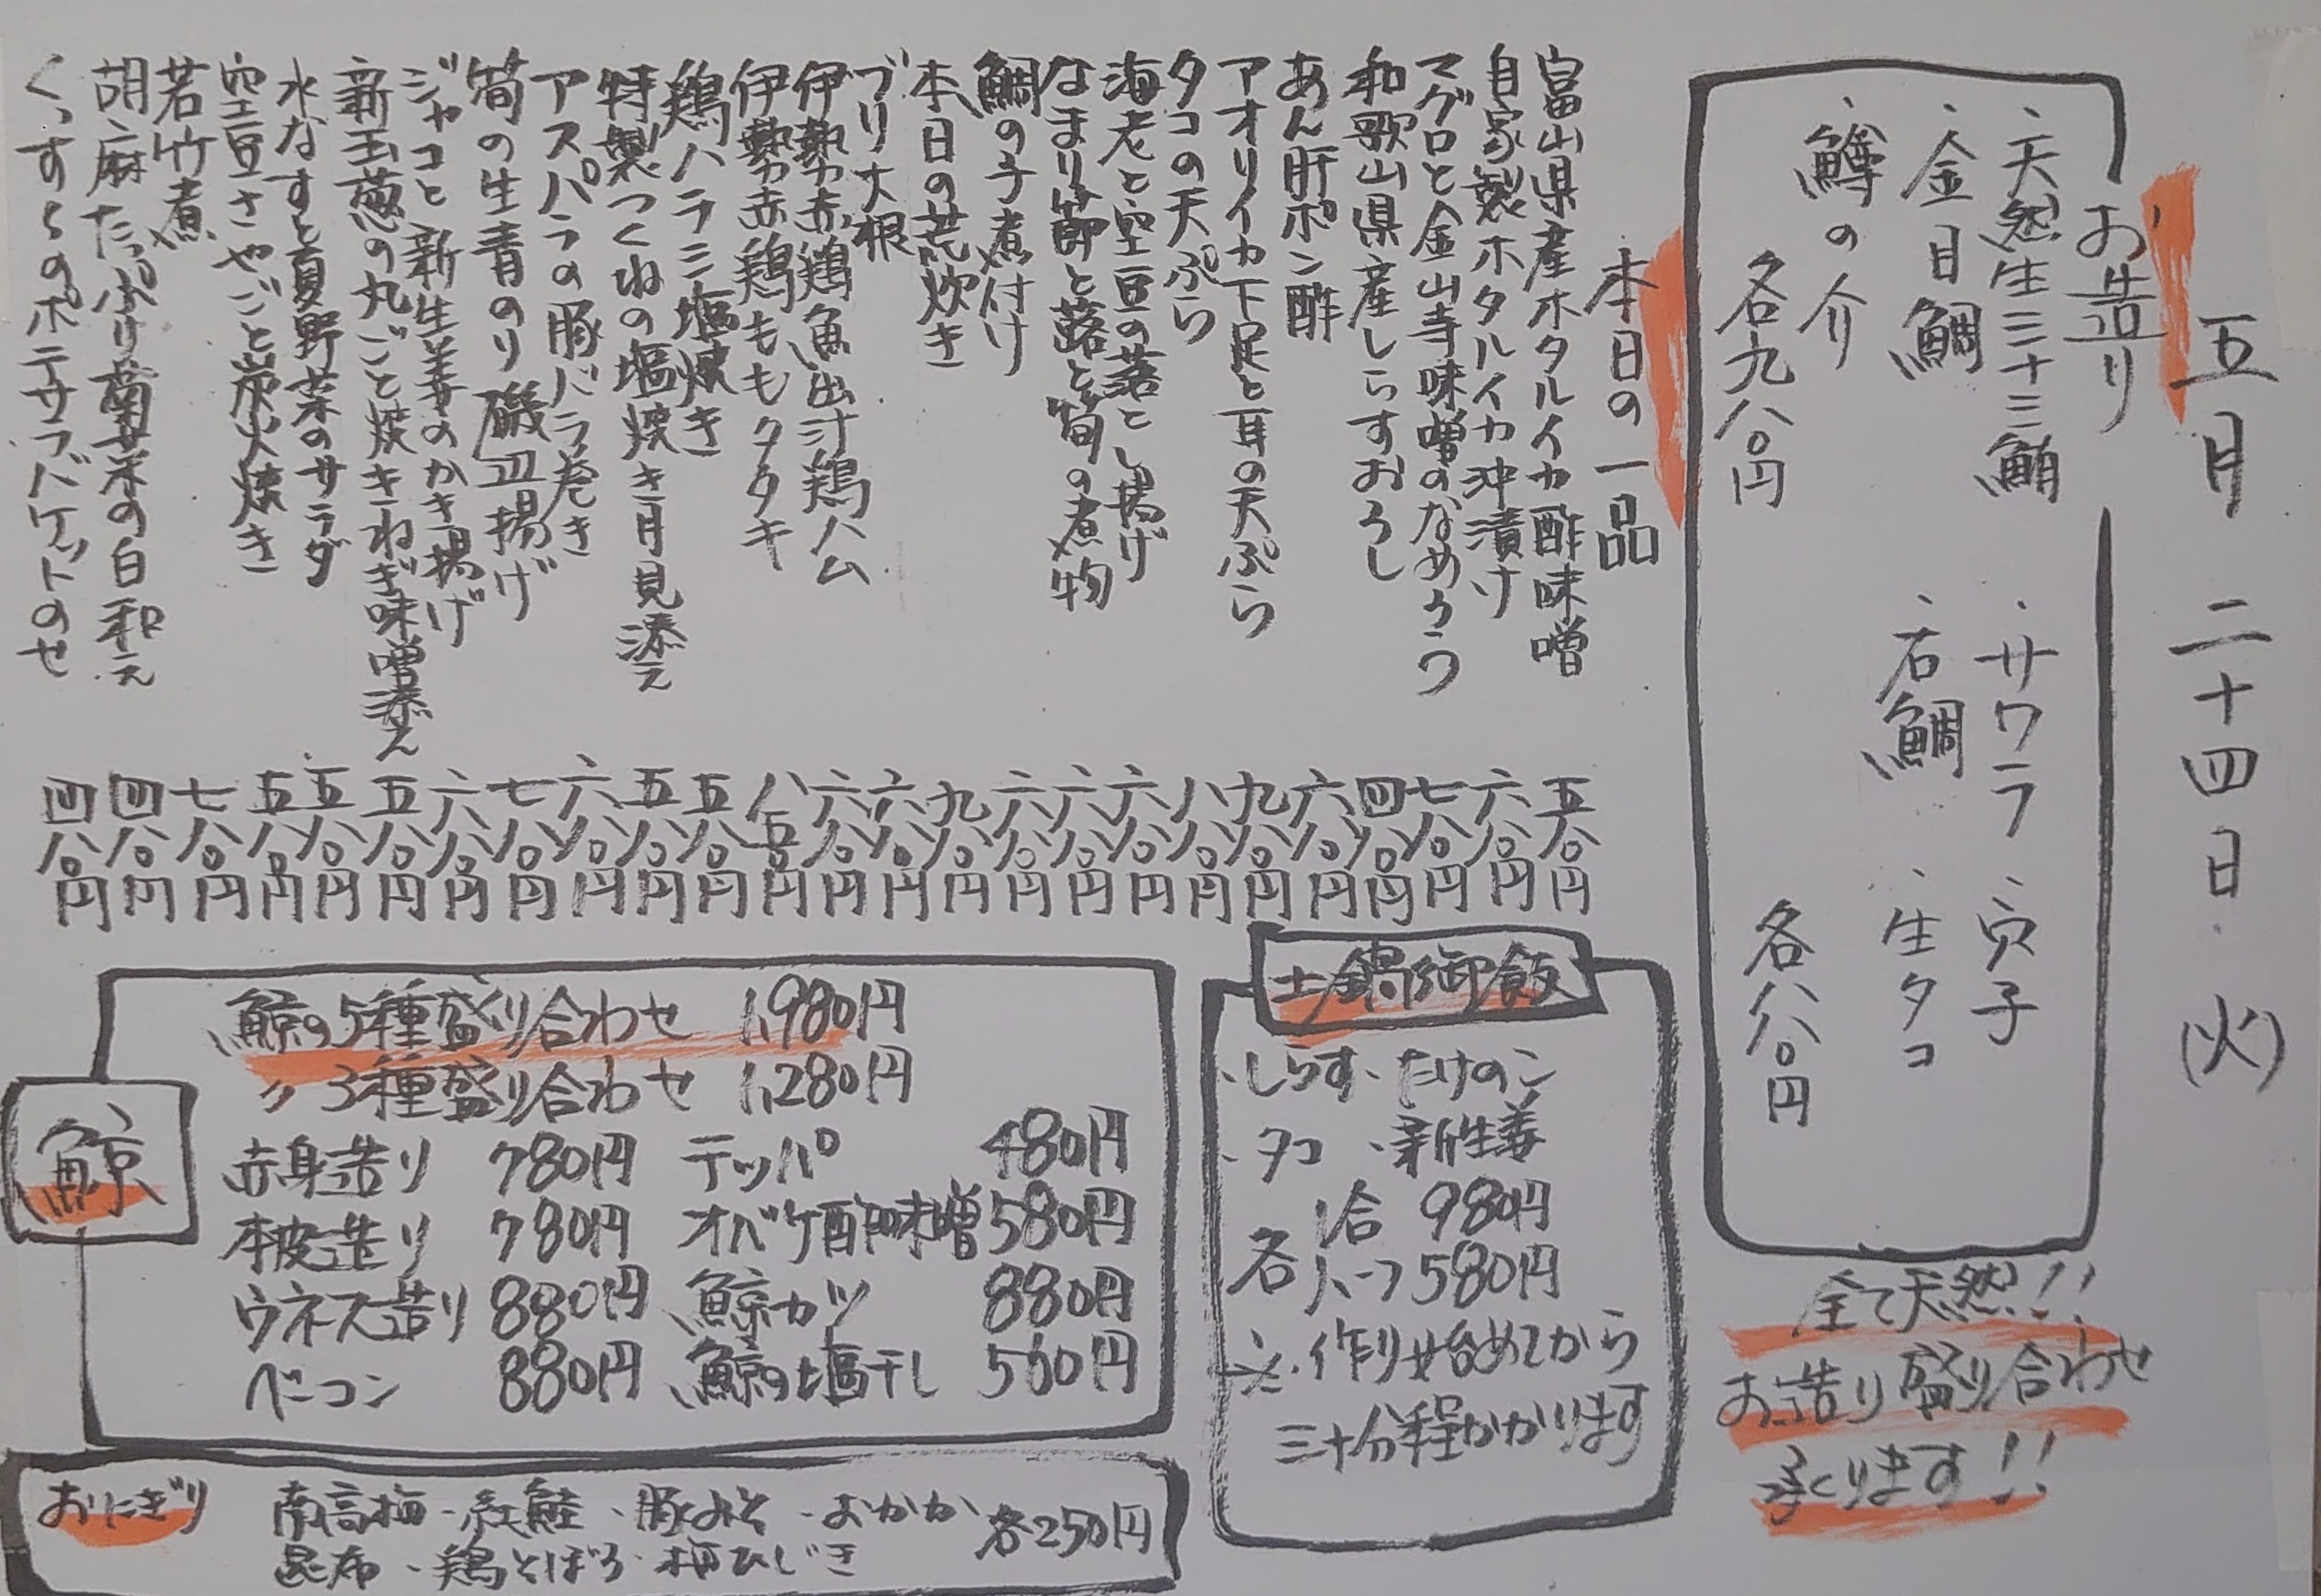 五月二十四日(火)
お造り
・天然生三十三鮪 ・サワラ ・穴子
・金目鯛 ・石鯛 ・生タコ
・鱒の介
各九八〇円 各八八〇円
全て天然!!
お造り盛り合わせ
承くります!!
本日の一品
富山県産ホタルイカ酢味噌 五八〇円
自家製ホタルイカ沖漬け 六八〇円
マグロと金山寺味噌のなめろう 七八〇円
和歌山県産しらすおろし 四八〇円
あん肝ポン酢 六八〇円
アオリイカ下足と耳の天ぷら 九八〇円
タコの天ぷら 八八〇円
海老と空豆の落とし揚げ 六八〇円
なまり節と蕗と筍の煮物 六八〇円
鯛の子煮付け 六八〇円
本日の荒炊き 九八〇円
ブリ大根 六八〇円
伊勢赤鶏魚出汁鶏ハム 六八〇円
伊勢赤鶏ももタタキ 八五〇円
鶏ハラミ塩焼き 五八〇円
特製つくねの塩焼き月見添え 五八〇円
アスパラの豚バラ巻き 六八〇円
筍の生青のり磯辺揚げ 七八〇円
ジャコと新生姜のかき揚げ 六八〇円
新玉葱の丸ごと焼きねぎ味噌添え 五八〇円
水なすと夏野菜のサラダ 五八〇円
空豆さやごと炭火焼き 五八〇円
若竹煮 七八〇円
胡麻たっぷり菊菜の白和え 四八〇円
くんすたまのポテサラバケットのせ 四八〇円
土鍋御飯
・しらす・たけのこ
・タコ ・新生姜
各 1合 980円
ハーフ 580円
※作り始めてから
三十分程かかります
鯨
鯨の5種盛り合わせ 1,980円
〃 3種盛り合わせ 1,280円
赤身造り 780円 テッパ 480円
本皮造り 780円 オバケ酢味噌 580円
ウネス造り 880円 鯨カツ 880円
ベーコン 880円 鯨の塩干し 560円
おにぎり
南高梅・紅鮭・豚みそ・おかか
昆布・鶏そぼろ・梅ひじき
各250円